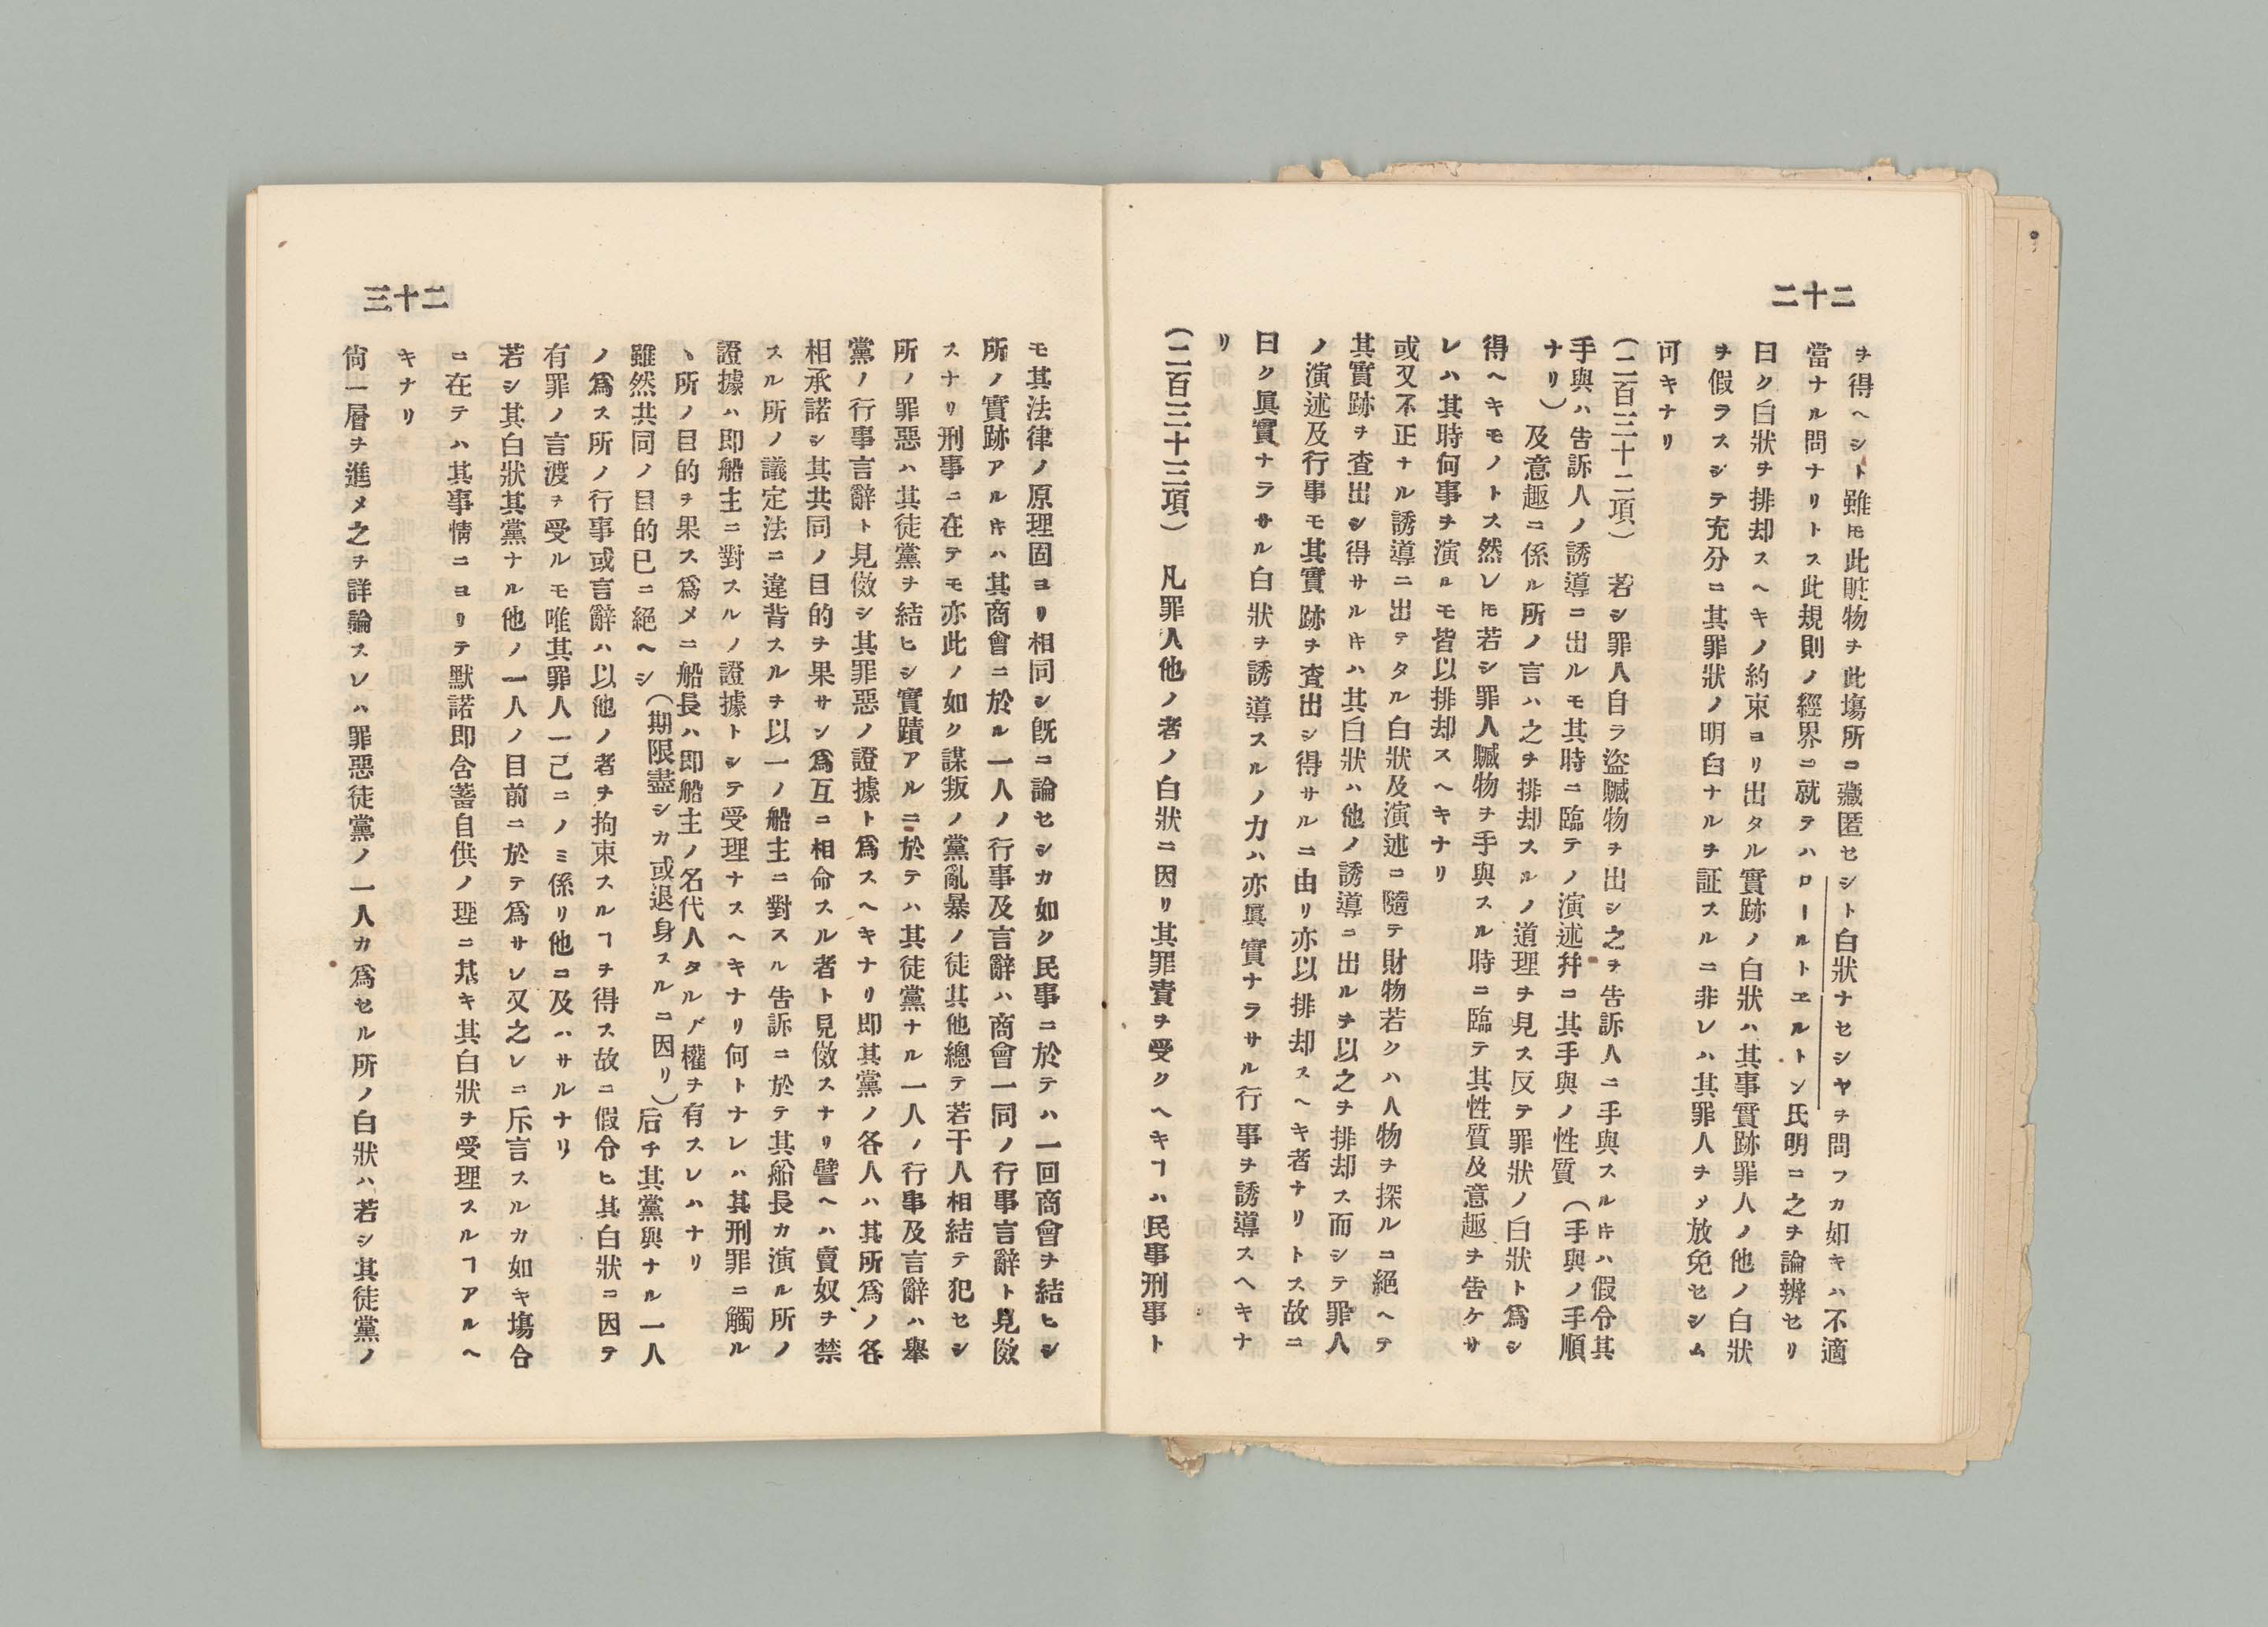 二十二
ヲ得ヘシト雖𪜈此賍物ヲ此塲所ニ藏匿セシト白狀ナセシヤヲ問フカ如キハ不適
當ナル問ナリトス此規則ノ經界ニ就テハロールトヱルトン氏明ニ之ヲ論辨セリ
曰ク白狀ヲ排却スヘキノ約束ヨリ出タル實跡ノ白狀ハ其事實跡罪人ノ他ノ白狀
ヲ假ラスシテ充分ニ其罪狀ノ明白ナルヲ証スルニ非レハ其罪人ヲ〆放免セシム
可キナリ
(二百三十二項) 若シ罪人自ラ盜贓物ヲ出シ之ヲ告訴人ニ手與スルキハ假令其
手與ハ告訴人ノ誘導ニ出ルモ其時ニ臨テノ演述幷ニ其手與ノ性質(手與ノ手順
ナリ)及意趣ニ係ル所ノ言ハ之ヲ排却スルノ道理ヲ見ス反テ罪狀ノ白狀ト爲シ
得ヘキモノトス然レ𪜈若シ罪人贓物ヲ手與スル時ニ臨テ其性質及意趣ヲ告ケサ
レハ其時何事ヲ演ルモ皆以排却スヘキナリ
或又不正ナル誘導ニ出テタル白狀及演述ニ隨テ財物若クハ人物ヲ探ルニ絕ヘテ
其實跡ヲ査出シ得サルキハ其白狀ハ他ノ誘導ニ出ルヲ以之ヲ排却ス而シテ罪人
ノ演述及行事モ其實跡ヲ査出シ得サルニ由リ亦以排却スヘキ者ナリトス故ニ
曰ク眞實ナラサル白狀ヲ誘導スルノ力ハ亦眞實ナラサル行事ヲ誘導スヘキナ
リ
(二百三十三項) 凡罪人他ノ者ノ白狀ニ因リ其罪責ヲ受クヘキヿハ民事刑事ト
二十三
モ其法律ノ原理固ヨリ相同シ旣ニ論セシカ如ク民事ニ於テハ一回商會ヲ結ヒシ
所ノ實跡アルキハ其商會ニ於ル一人ノ行事及言辭ハ商會一同ノ行事言辭ト見做
スナリ刑事ニ在テモ亦此ノ如ク謀叛ノ黨亂暴ノ徒其他總テ若干人相結テ犯セシ
所ノ罪惡ハ其徒黨ヲ結ヒシ實蹟アルニ於テハ其徒黨ナル一人ノ行事及言辭ハ擧
黨ノ行事言辭ト見做シ其罪惡ノ證據ト爲スヘキナリ即其黨ノ各人ハ其所爲ノ各
相承諾シ其共同ノ目的ヲ果サン爲互ニ相命スル者ト見做スナリ譬ヘハ賣奴ヲ禁
スル所ノ議定法ニ違背スルヲ以一ノ船主ニ對スル告訴ニ於テ其船長カ演ル所ノ
證據ハ即船主ニ對スルノ證據トシテ受理ナスヘキナリ何トナレハ其刑罪ニ觸ル
ヽ所ノ目的ヲ果ス爲メニ船長ハ即船主ノ名代人タルノ權ヲ有スレハナリ
雖然共同ノ目的已ニ絕ヘシ(期限盡シカ或退身スルニ因リ)后チ其黨與ナル一人
ノ爲ス所ノ行事或言辭ハ以他ノ者ヲ拘束スルヿヲ得ス故ニ假令ヒ其白狀ニ因テ
有罪ノ言渡ヲ受ルモ唯其罪人一己ニノミ係リ他ニ及ハサルナリ
若シ其白狀其黨ナル他ノ一人ノ目前ニ於テ爲サレ又之レニ斥言スルカ如キ塲合
ニ在テハ其事情ニヨリテ默諾即含蓄自供ノ理ニ基キ其白狀ヲ受理スルヿアルヘ
キナリ
尙一層ヲ進メ之ヲ詳論スレハ罪惡徒黨ノ一人カ爲セル所ノ白狀ハ若シ其徒黨ノ